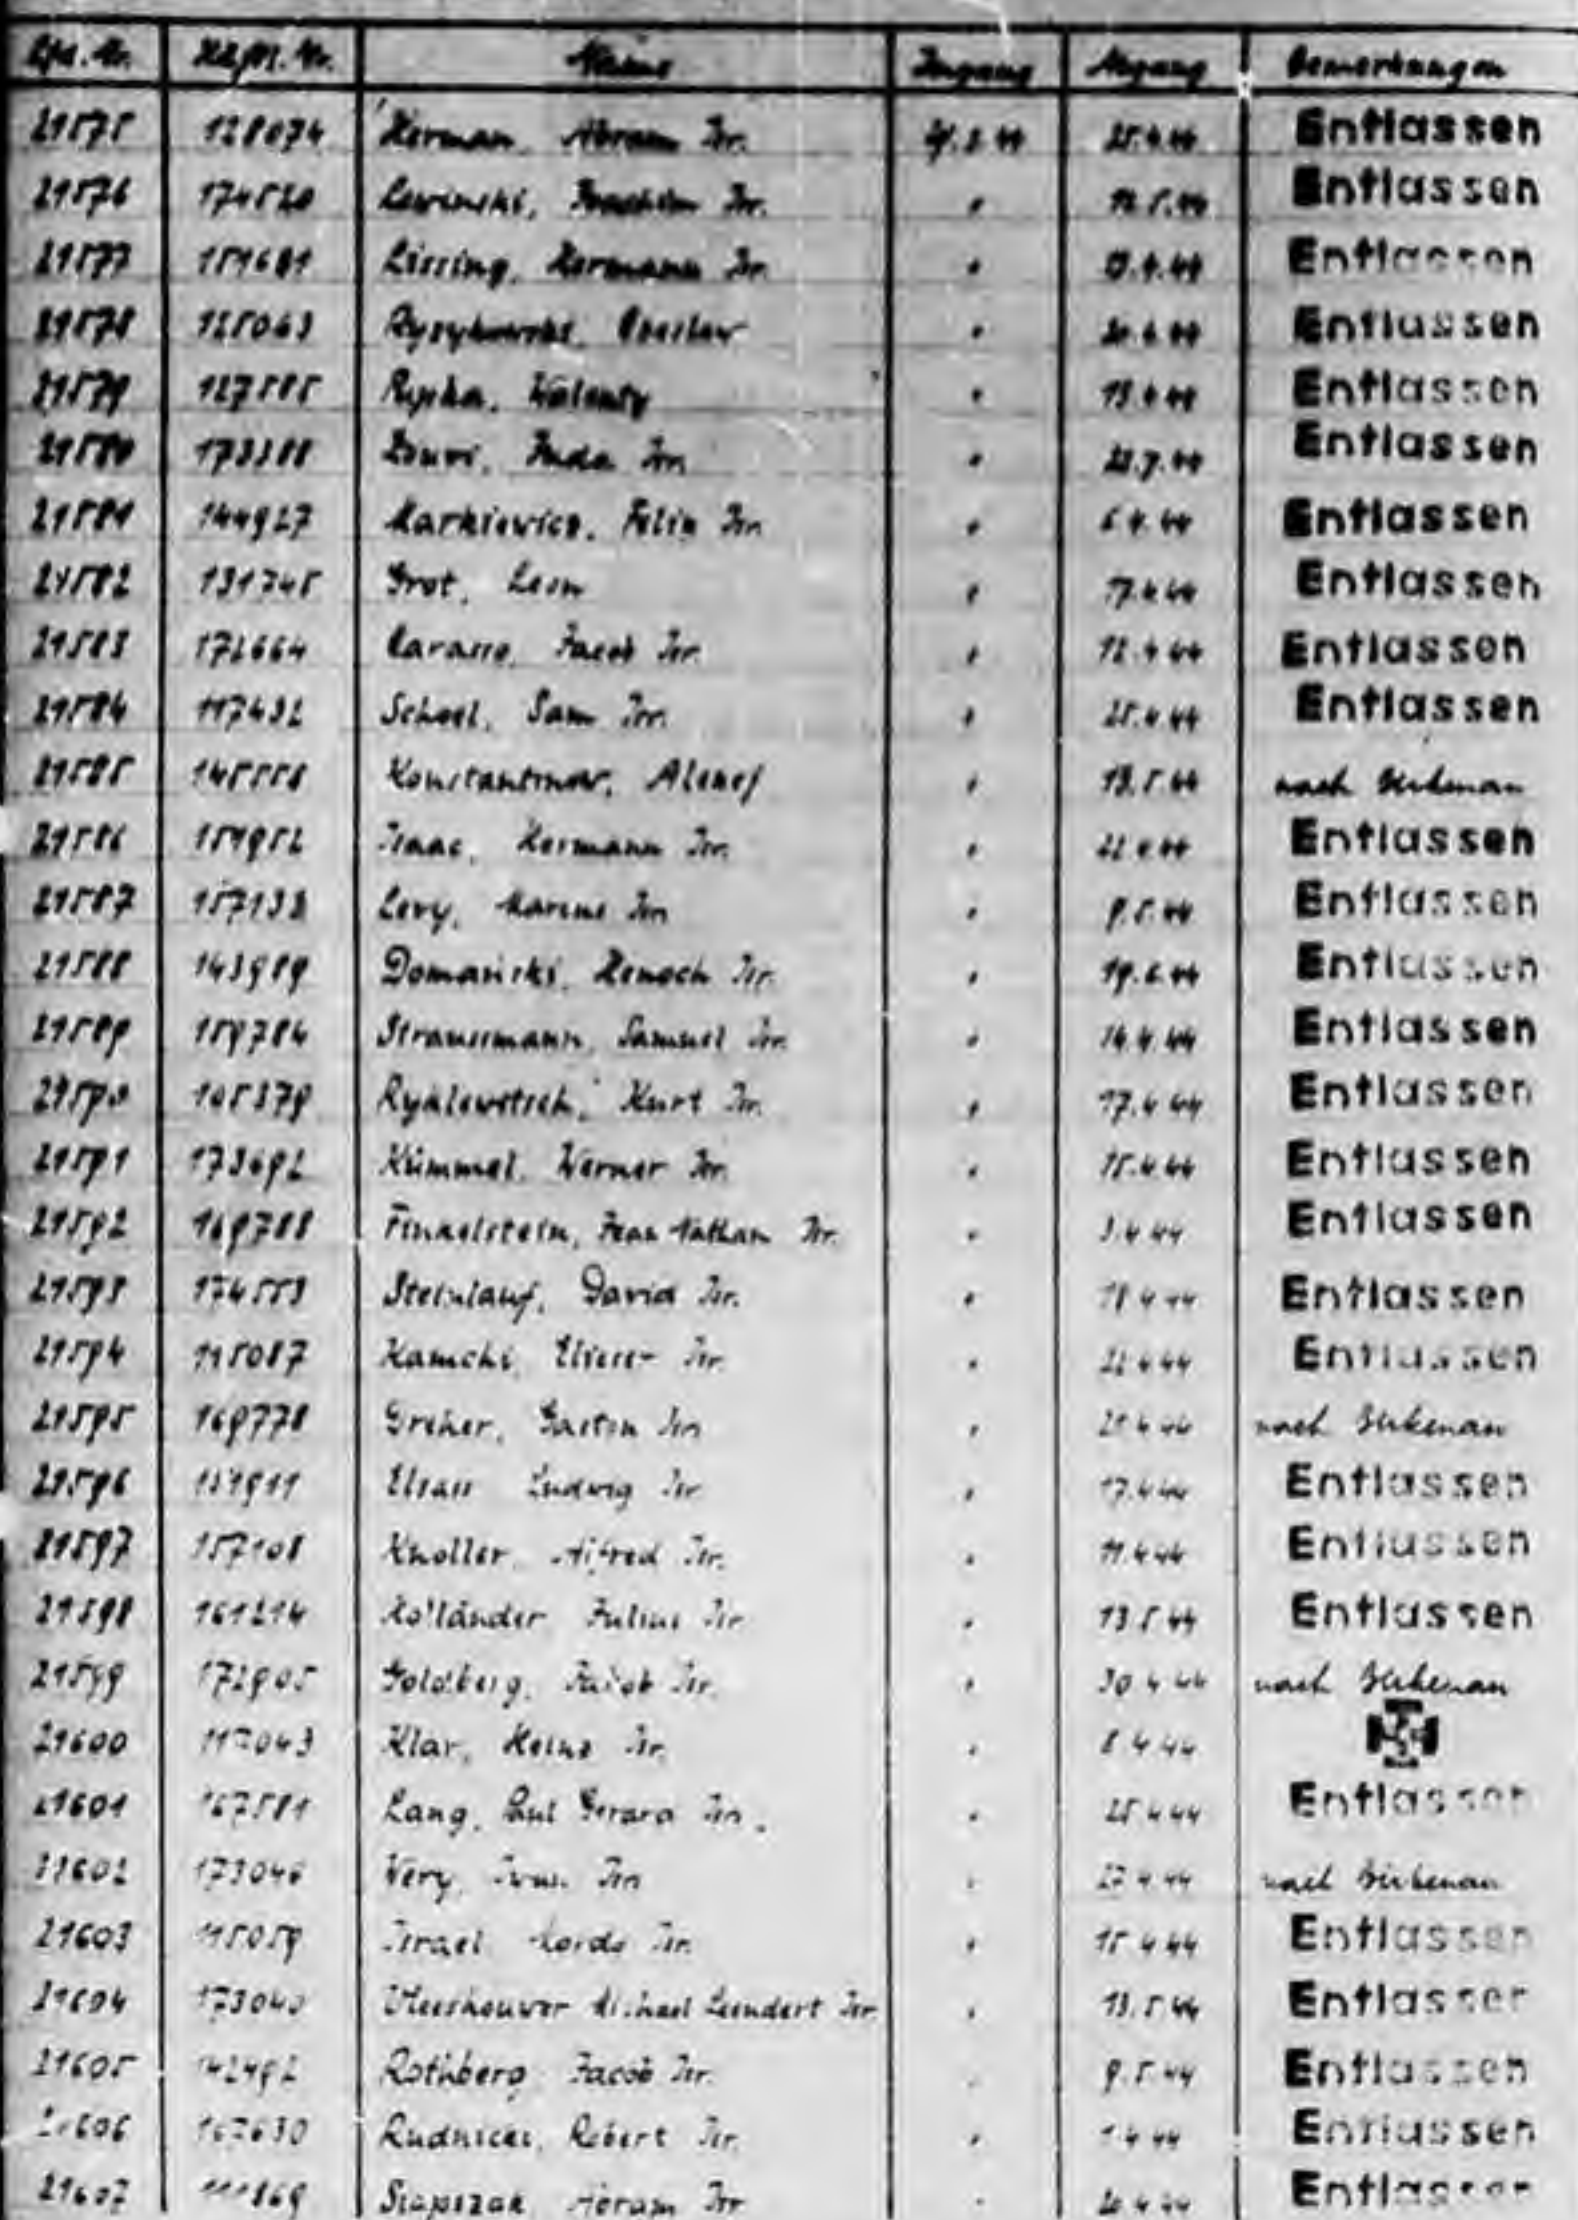 Lfd. Nr. Name Zugang Abgang Bemerkungen
21575 128074 Herman, Abram Isr. 25.4.44 Entlassen
21576 174520 Lewinski, Joachim Isr. " 12.5.44 Entlassen
21577 Lissing, Hermann Isr. " Entlassen
21578 125063 " Entlassen
21579 Rypka, Walenty " 13.4.44 Entlassen
21580 Juda Isr. " Entlassen
21581 144927 Markiewicz, Felix Isr. " 6.4.44 Entlassen
21582 131745 Grot, Leon " 17.4.44 Entlassen
21583 172664 Carasso, Jacob Isr. " 12.4.44 Entlassen
21584 117432 Schoel, Sam Isr. " 25.4.44 Entlassen
21585 145558 Konstantinow, Alexej " 13.5.44 nach Birkenau
21586 151952 Isaac, Hermann Isr. " 22.4.44 Entlassen
21587 Levy, Marcus Isr. " 9.5.44 Entlassen
21588 143989 Domanski, Henoch Isr. " 19.6.44 Entlassen
21589 159784 Straussmann, Samuel Isr. " 14.4.44 Entlassen
21590 105379 Rychlewitsch, Kurt Isr. " 17.4.44 Entlassen
21591 173692 Kümmel, Werner Isr. " 15.4.44 Entlassen
21592 169788 Finkelstein, Jean Nathan Isr. " 3.4.44 Entlassen
21593 174553 Steinlauf, David Isr. " 18.4.44 Entlassen
21594 115087 Kamchi, Isr. " 22.4.44 Entlassen
21595 169778 Greher, Gaston Isr. " 21.4.44 nach Birkenau
21596 Elsass Ludwig Isr. " 17.4.44 Entlassen
21597 157108 Knoller, Alfred Isr. " 11.4.44 Entlassen
21598 161214 Holländer Julius Isr. " 13.5.44 Entlassen
21599 172905 Goldberg, Jacob Isr. " 30.4.44 nach Birkenau
21600 117043 Klar, Heinz Isr. " 8.4.44
21601 167581 Lang, Paul Gerard Isr. " 25.4.44 Entlassen
21602 Very, Isr. " 27.4.44 nach Birkenau
21603 115059 Israel Mordo Isr. " 15.4.44 Entlassen
21604 Vleeshouwer Michael Leendert Isr. " 13.5.44 Entlassen
21605 142492 Rothberg Jacob Isr. " 9.5.44 Entlassen
21606 167630 Rudnicki, Robert Isr. " Entlassen
21607 Abram Isr. Entlassen